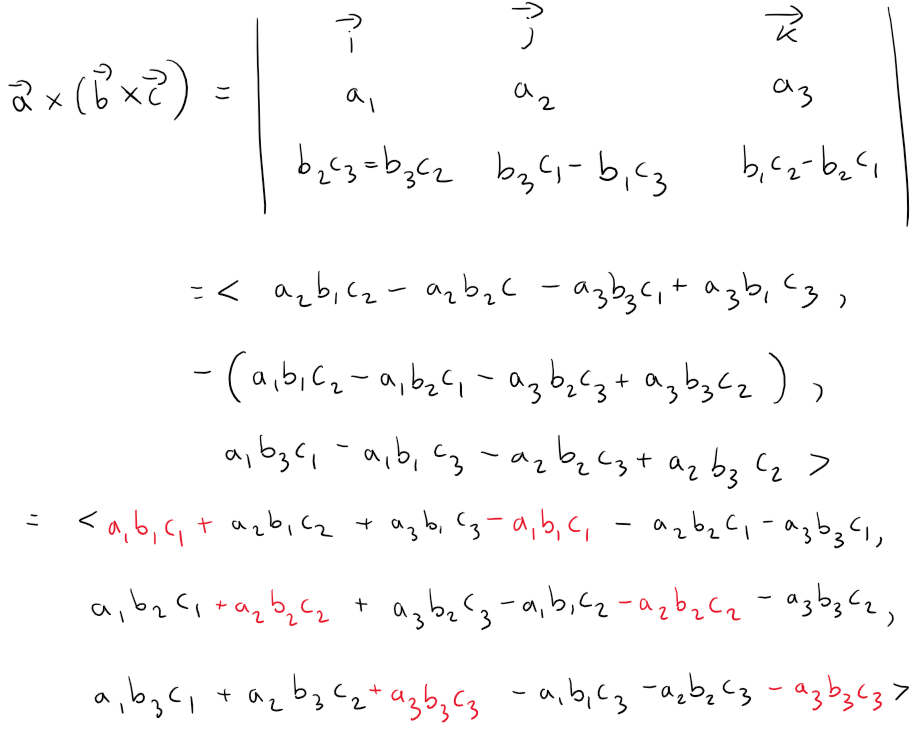 →i →j →k
→a × (→b × →c) = | a₁ a₂ a₃ |
b₂c₃=b₃c₂ b₃c₁ - b₁c₃ b₁c₂-b₂c₁
= < a₂b₁c₂ - a₂b₂c - a₃b₃c₁ + a₃b₁c₃ ,
- ( a₁b₁c₂ - a₁b₂c₁ - a₃b₂c₃ + a₃b₃c₂ ) ,
a₁b₃c₁ - a₁b₁c₃ - a₂b₂c₃ + a₂b₃c₂ >
= < a₁b₁c₁ + a₂b₁c₂ + a₃b₁c₃ - a₁b₁c₁ - a₂b₂c₁ - a₃b₃c₁,
a₁b₂c₁ + a₂b₂c₂ + a₃b₂c₃ - a₁b₁c₂ - a₂b₂c₂ - a₃b₃c₂,
a₁b₃c₁ + a₂b₃c₂ + a₃b₃c₃ - a₁b₁c₃ - a₂b₂c₃ - a₃b₃c₃ >